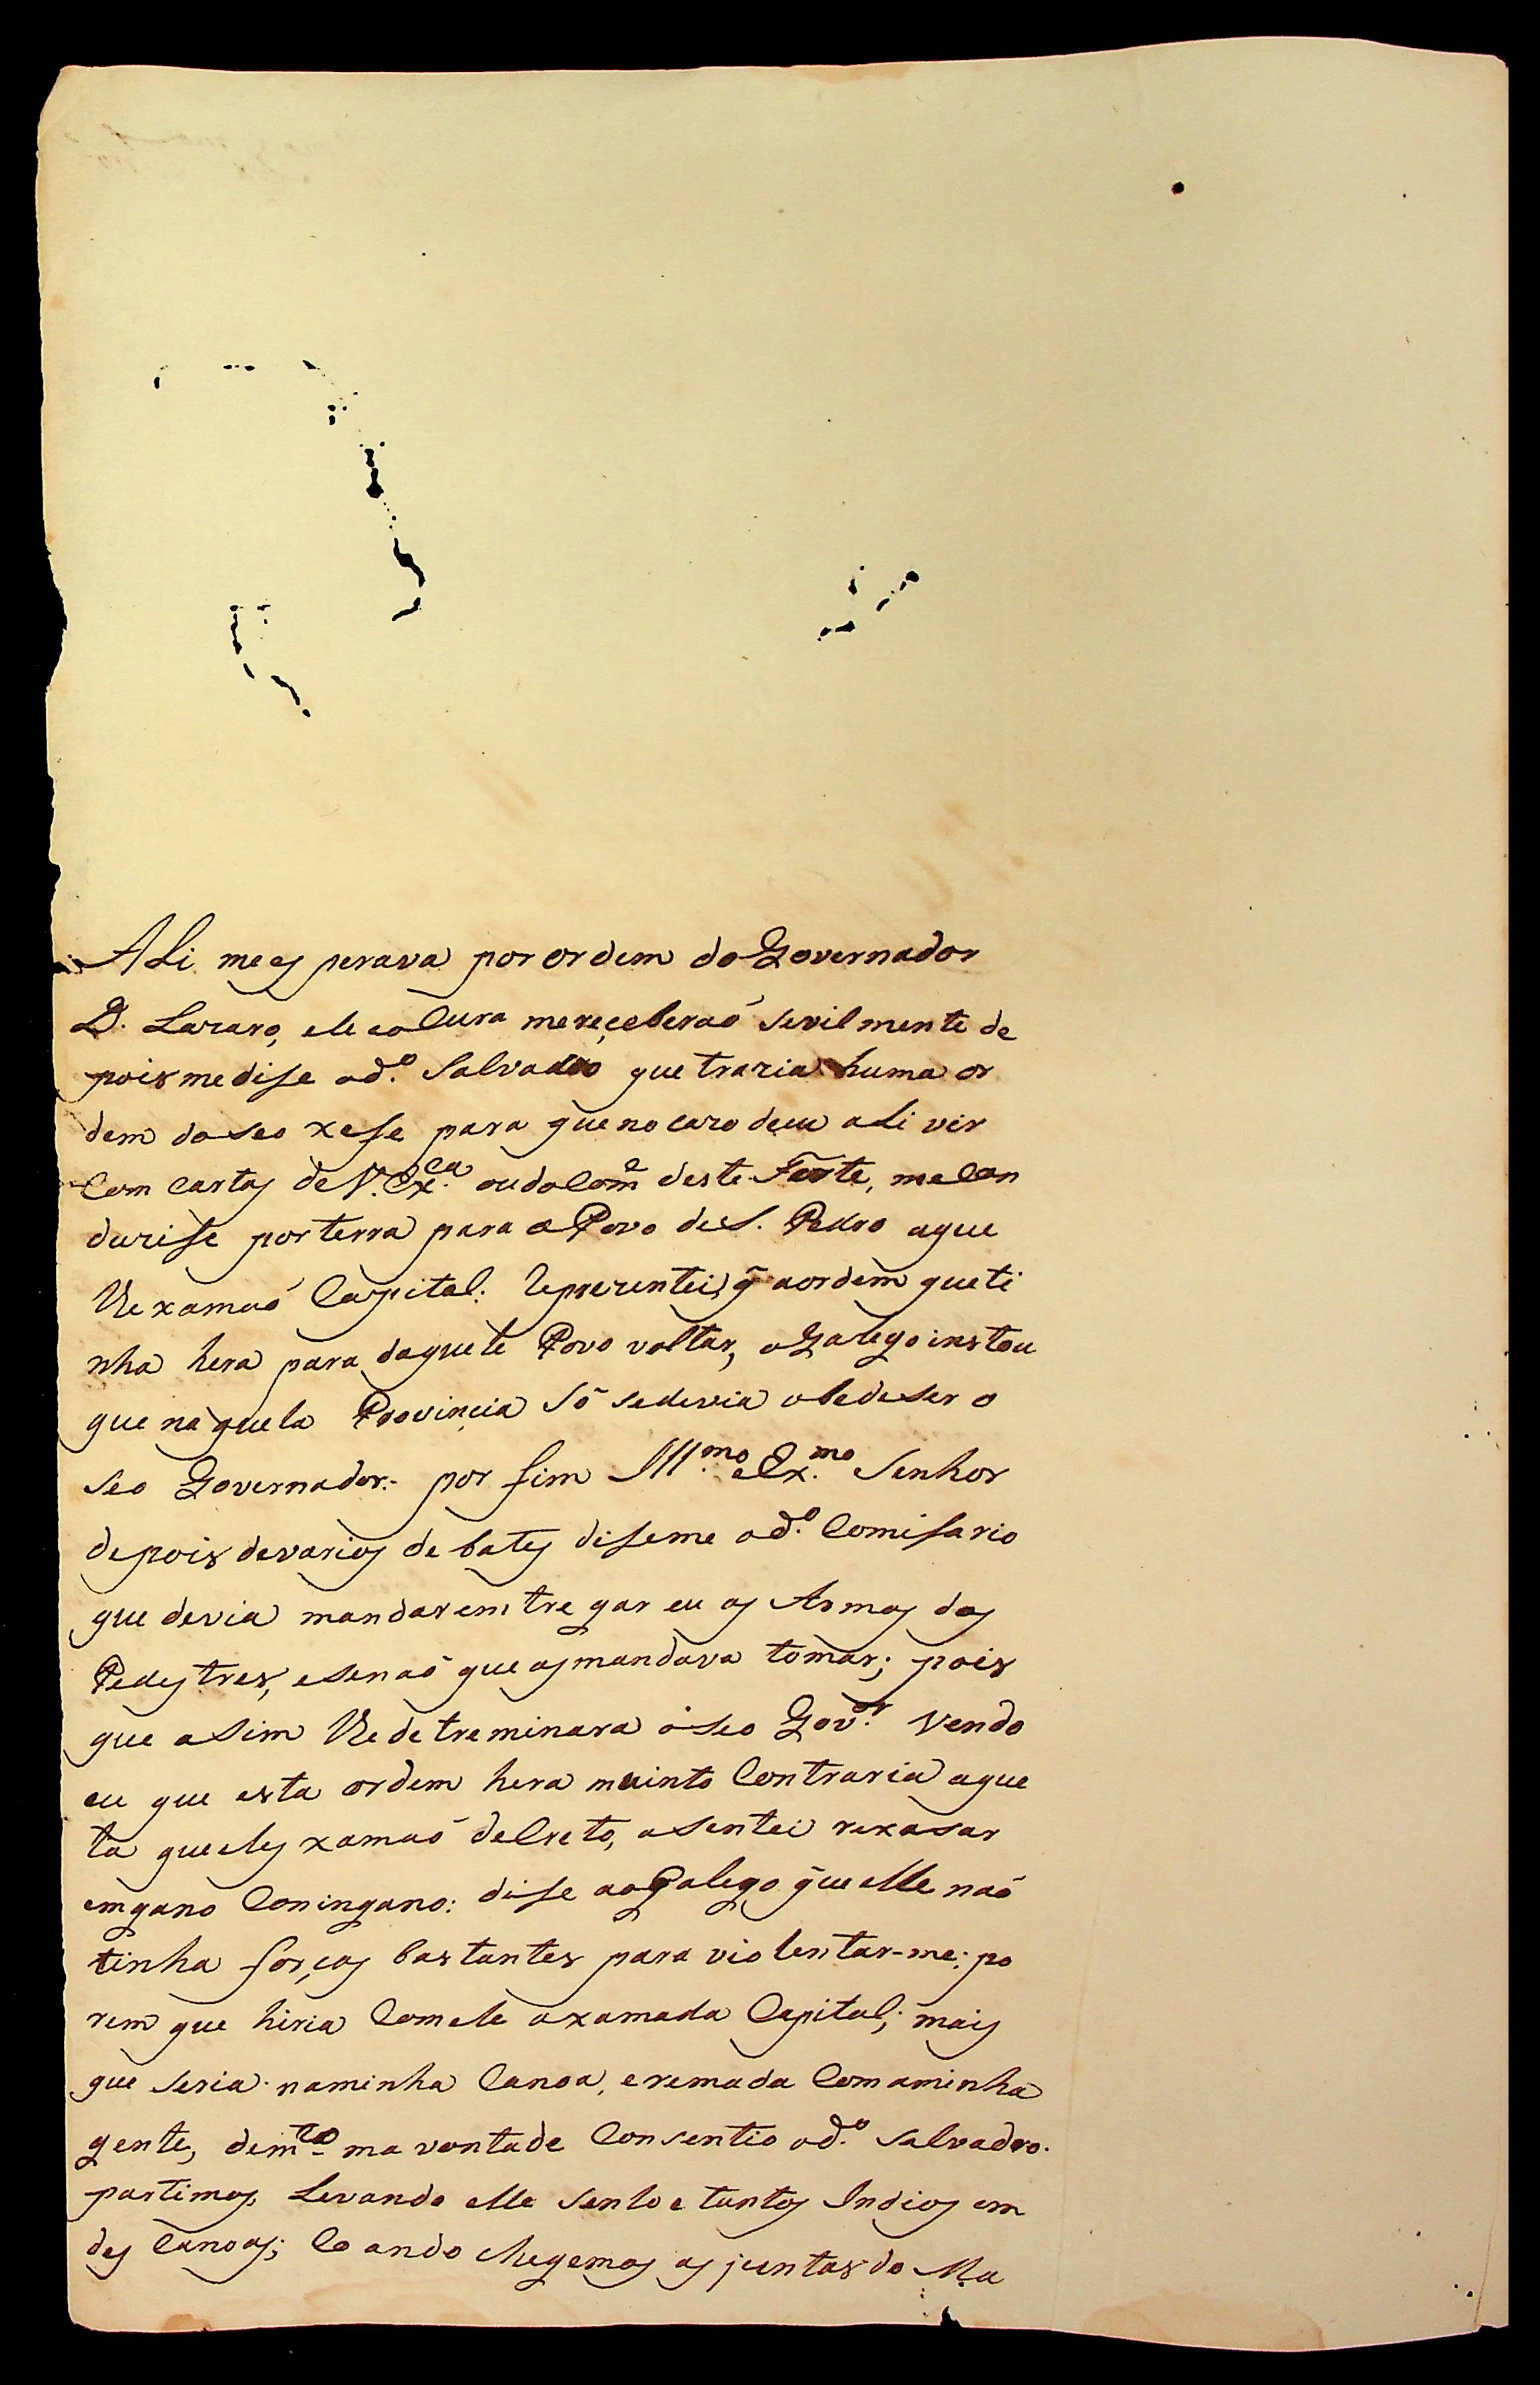 ALi mees perava por ordem do Governador
D. Lazaro, ele eo Cura mereçeberaõ sevilmente de
pois me dise o d.º Salvadro que trazia huma or
dem do seo xefe para que no cazo deeu aLi vir
Com Cartas de V. Ex.ca ou do Com.e deste Forte, me Con
duzise por terra para o Povo de S. Pedro aque
lle xamaõ Capital: Reprezentei q̃ aordem que ti
nha hera para daquele Povo voltar, o Galego instou
que naquela Provinçia Só sedevia obedeser o
seo Governador: por fim Ill.mo e Ex.mo Senhor
depois devarios de bates diseme o d.º Comisario
que devia mandar emtregar eu as Armas dos
Pedestres, esenaõ que asmandava tomar; pois
que aSim lhe detreminara o seo Gov.or Vendo
eu que esta ordem hera muinto Contraria aque
la que eles xamaõ deCreto, aSentei rexasar
emgano Coningano: dise ao Galego q̃ue elle naõ
tinha forças bastantes para violentar-me: po
rem que hiria Comele axamada Capital; mais
que seria naminha Canoa, eremada Comaminha
gente, dem.to ma vontade Consentio o d.º Salvadro.
partimos, Levando elle Sento e tantos Indios em
des Canoas; Coando chegemos as juntas do Ma